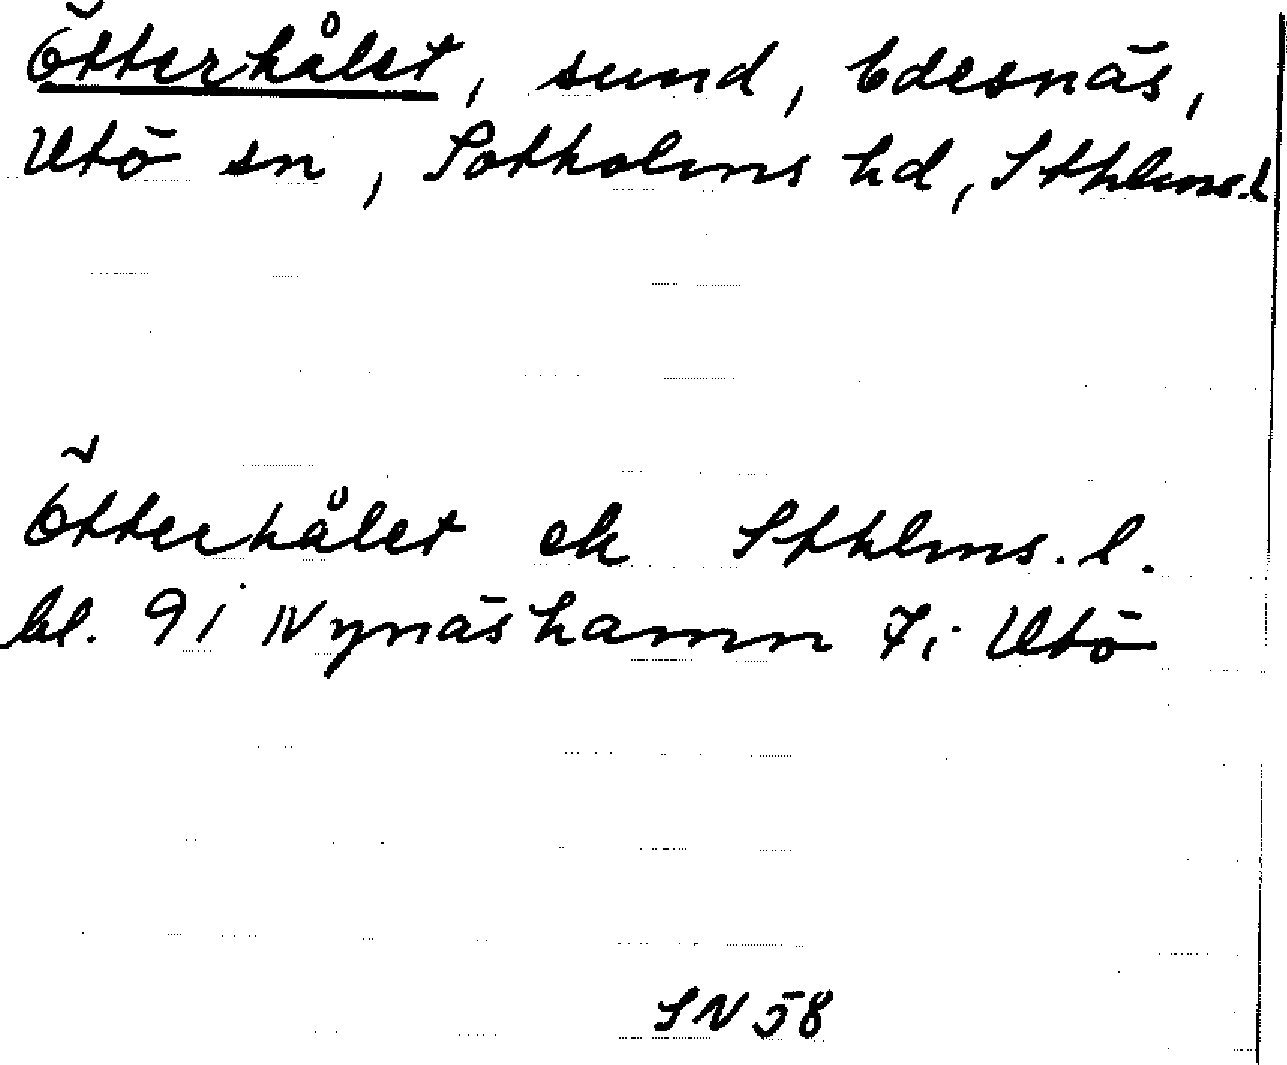 Ötterhålet, sund, Edesnäs,
Utö sn, Sotholms hd, Sthlms.l
Ötterhålet ek Sthlms. l.
bl. 9 i NV Nynäshamn 7 i Utö
SN 58